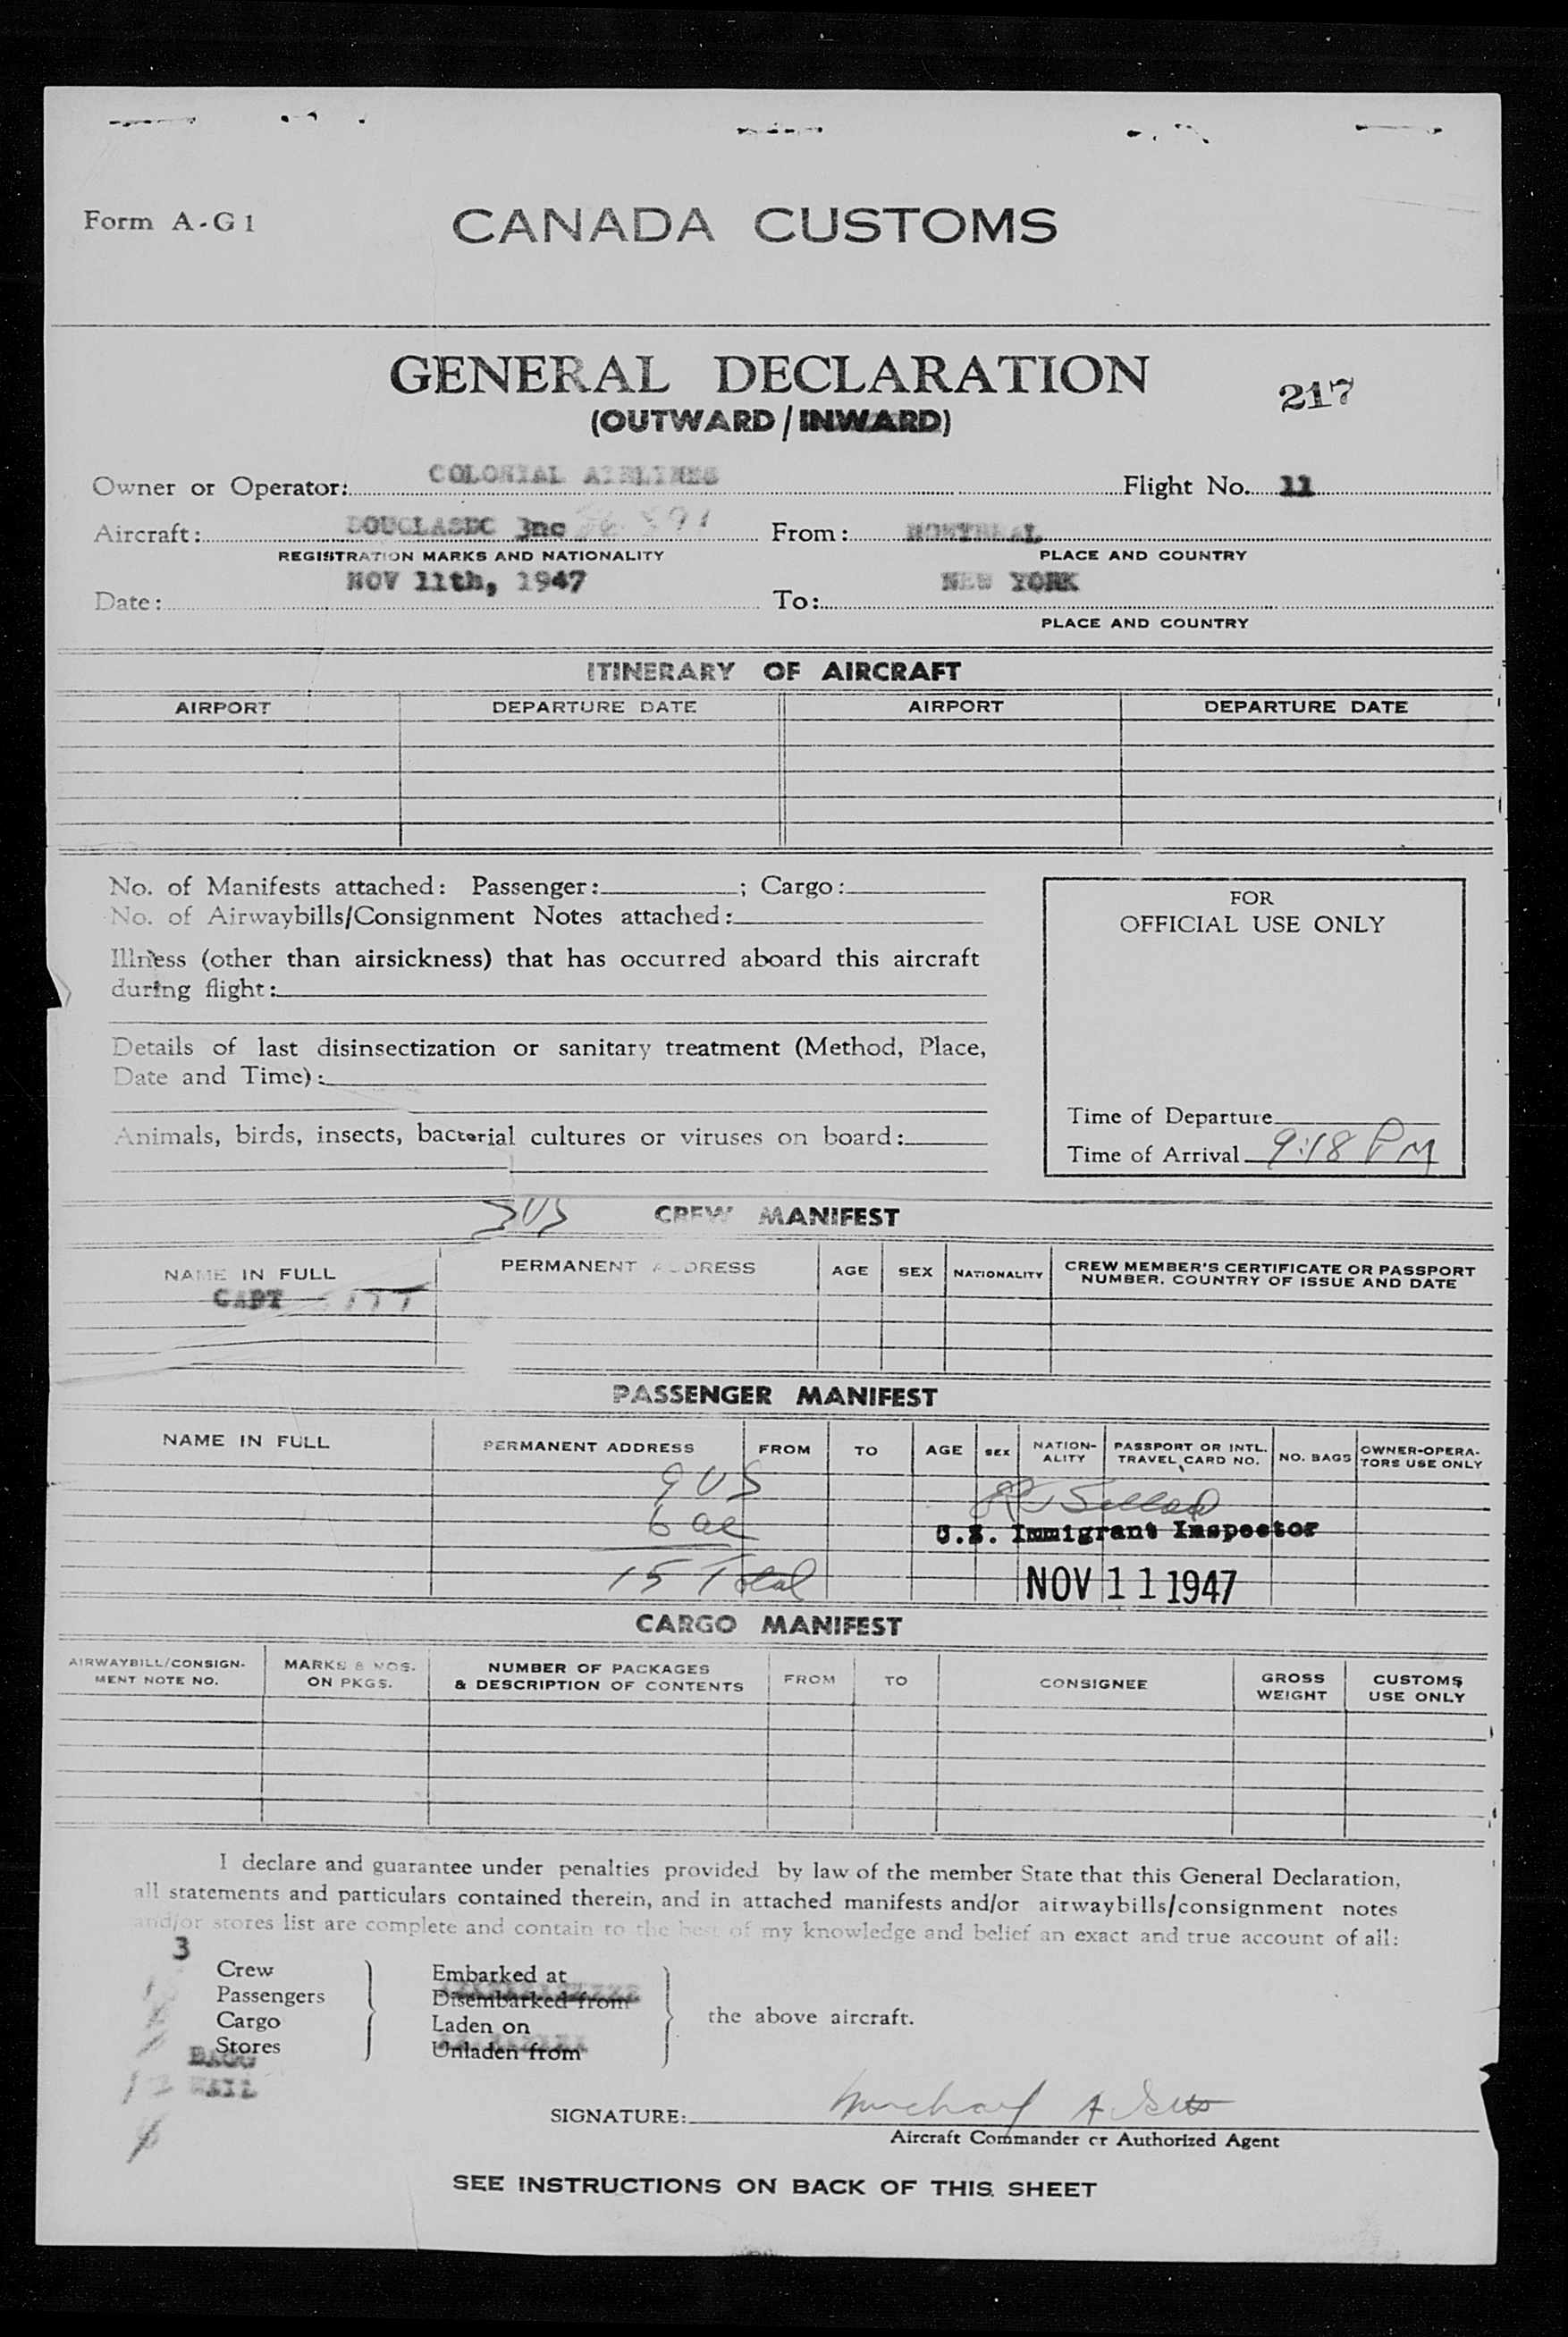 Form A-G1
CANADA CUSTOMS
GENERAL DECLARATION
217
(OUTWARD / INWARD)
Owner or Operator: COLONIAL AIRLINES Flight No. 11
Aircraft: DOUGLASDC 3nc 891 From: MONTREAL
REGISTRATION MARKS AND NATIONALITY PLACE AND COUNTRY
Date: NOV 11th, 1947 To: NEW YORK
PLACE AND COUNTRY
ITINERARY OF AIRCRAFT
AIRPORT DEPARTURE DATE AIRPORT DEPARTURE DATE
No. of Manifests attached: Passenger: ; Cargo:
No. of Airwaybills/Consignment Notes attached:
Illness (other than airsickness) that has occurred aboard this aircraft
during flight:
Details of last disinsectization or sanitary treatment (Method, Place,
Date and Time):
Animals, birds, insects, bacterial cultures or viruses on board:
FOR
OFFICIAL USE ONLY
Time of Departure
Time of Arrival 9:18 PM
3US
CREW MANIFEST
NAME IN FULL PERMANENT ADDRESS AGE SEX NATIONALITY CREW MEMBER'S CERTIFICATE OR PASSPORT
NUMBER, COUNTRY OF ISSUE AND DATE
CAPT
PASSENGER MANIFEST
NAME IN FULL PERMANENT ADDRESS FROM TO AGE SEX NATION- PASSPORT OR INTL. NO. BAGS OWNER-OPERA-
ALITY TRAVEL CARD NO. TORS USE ONLY
9 US
6 al
U.S. Immigrant Inspector
15 Total
NOV 11 1947
CARGO MANIFEST
AIRWAYBILL/CONSIGN- MARKS & NOS. NUMBER OF PACKAGES FROM TO CONSIGNEE GROSS CUSTOMS
MENT NOTE NO. ON PKGS. & DESCRIPTION OF CONTENTS WEIGHT USE ONLY
I declare and guarantee under penalties provided by law of the member State that this General Declaration,
all statements and particulars contained therein, and in attached manifests and/or airwaybills/consignment notes
and/or stores list are complete and contain to the best of my knowledge and belief an exact and true account of all:
3
Crew Embarked at
Passengers Disembarked from
the above aircraft.
Cargo Laden on
Stores Unladen from
BAGG
MAIL
SIGNATURE: Michael A
Aircraft Commander or Authorized Agent
SEE INSTRUCTIONS ON BACK OF THIS SHEET